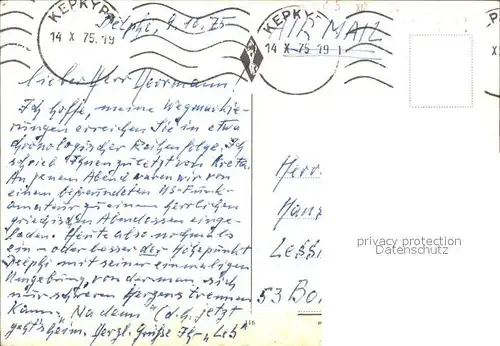 Delphi, 9.10.75
AIR MAIL
ΚΕΡΚΥΡΑ
14 X 75.19
ΚΕΡΚΥ
14 X 75 19
Lieber Herr Herrmann!
Ich hoffe, meine Wegmarkie-
rungen erreichen Sie in etwa
chronologischer Reihenfolge. Ich
schrieb Ihnen zuletzt von Kreta.
An jenem Abend waren wir von
einem befreundeten US-Funk-
amateur zu einem herrlichen
griechischen Abendessen einge-
laden. Heute also nochmals
ein - oder besser der Höhepunkt
Delphi mit seiner einmaligen
Umgebung, von der man sich
nur schweren Herzens trennen
kann. Na denn (d.h. jetzt
geht's heim. Herzl. Grüße Ihr
Herr
53 Bo
privacy protection
watermark